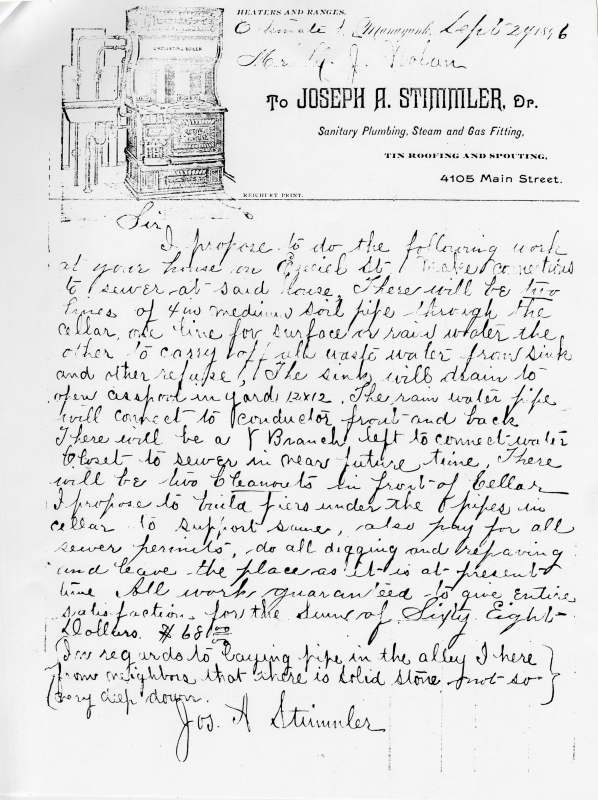 HEATERS AND RANGES.
Estimate Manayunk, Sept 29 1896
Mr J. Nolan
To JOSEPH A. STIMMLER, Dr.
Sanitary Plumbing, Steam and Gas Fitting,
TIN ROOFING AND SPOUTING,
4105 Main Street.
REICHERT PRINT.
Sir
I propose to do the following work
at your house on St make conections
to sewer at said house. There will be two
lines of 4 in medium soil pipe through the
cellar, one line for surface or rain water the
other to carry off all waste water from sink
and other refuse, The sink will drain to
open casspool in yard 12x12. The rain water pipe
will connect to conductor front and back
There will be a Y Branch left to connect water
Closet to sewer in near future time, There
will be two Cleanouts in front of Cellar
I propose to build piers under the pipes in
cellar to support same, also pay for all
sewer permits, do all digging and repaving
and leave the place as it is at present
time All work guaranteed to give entire
satisfaction. for the Sum of Sixty Eight
Dollars $ 68 00
In regards to laying pipe in the alley I here
from neighbors that there is solid stone not so
very diep down.
Jos. A Stimmler